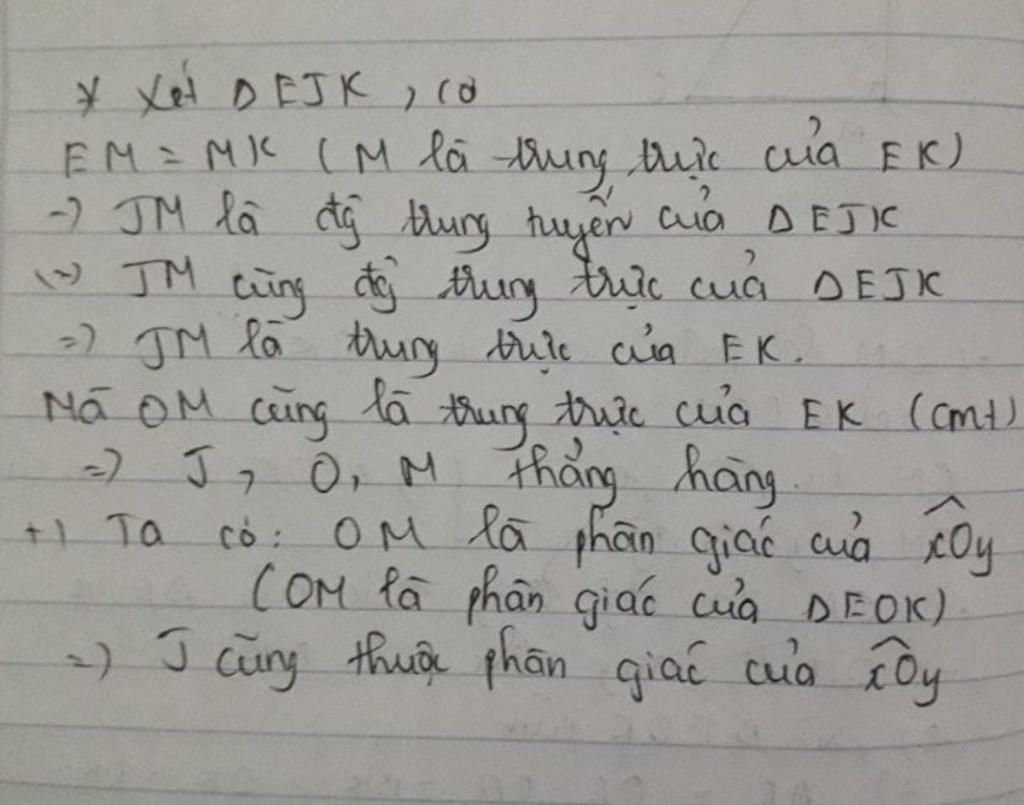 * Xét ΔEJK, có
EM = MK (M là trung trực của EK)
-) JM là đg trung tuyến của ΔEJK
(~) JM cũng đg trung trực của ΔEJK
=) JM là trung trực của EK.
Mà OM cũng là trung trực của EK (cmt)
=) J, O, M thẳng hàng.
+) Ta có: OM là phân giác của xÔy
(OM là phân giác của ΔEOK)
=) J cũng thuộc phân giác của xÔy